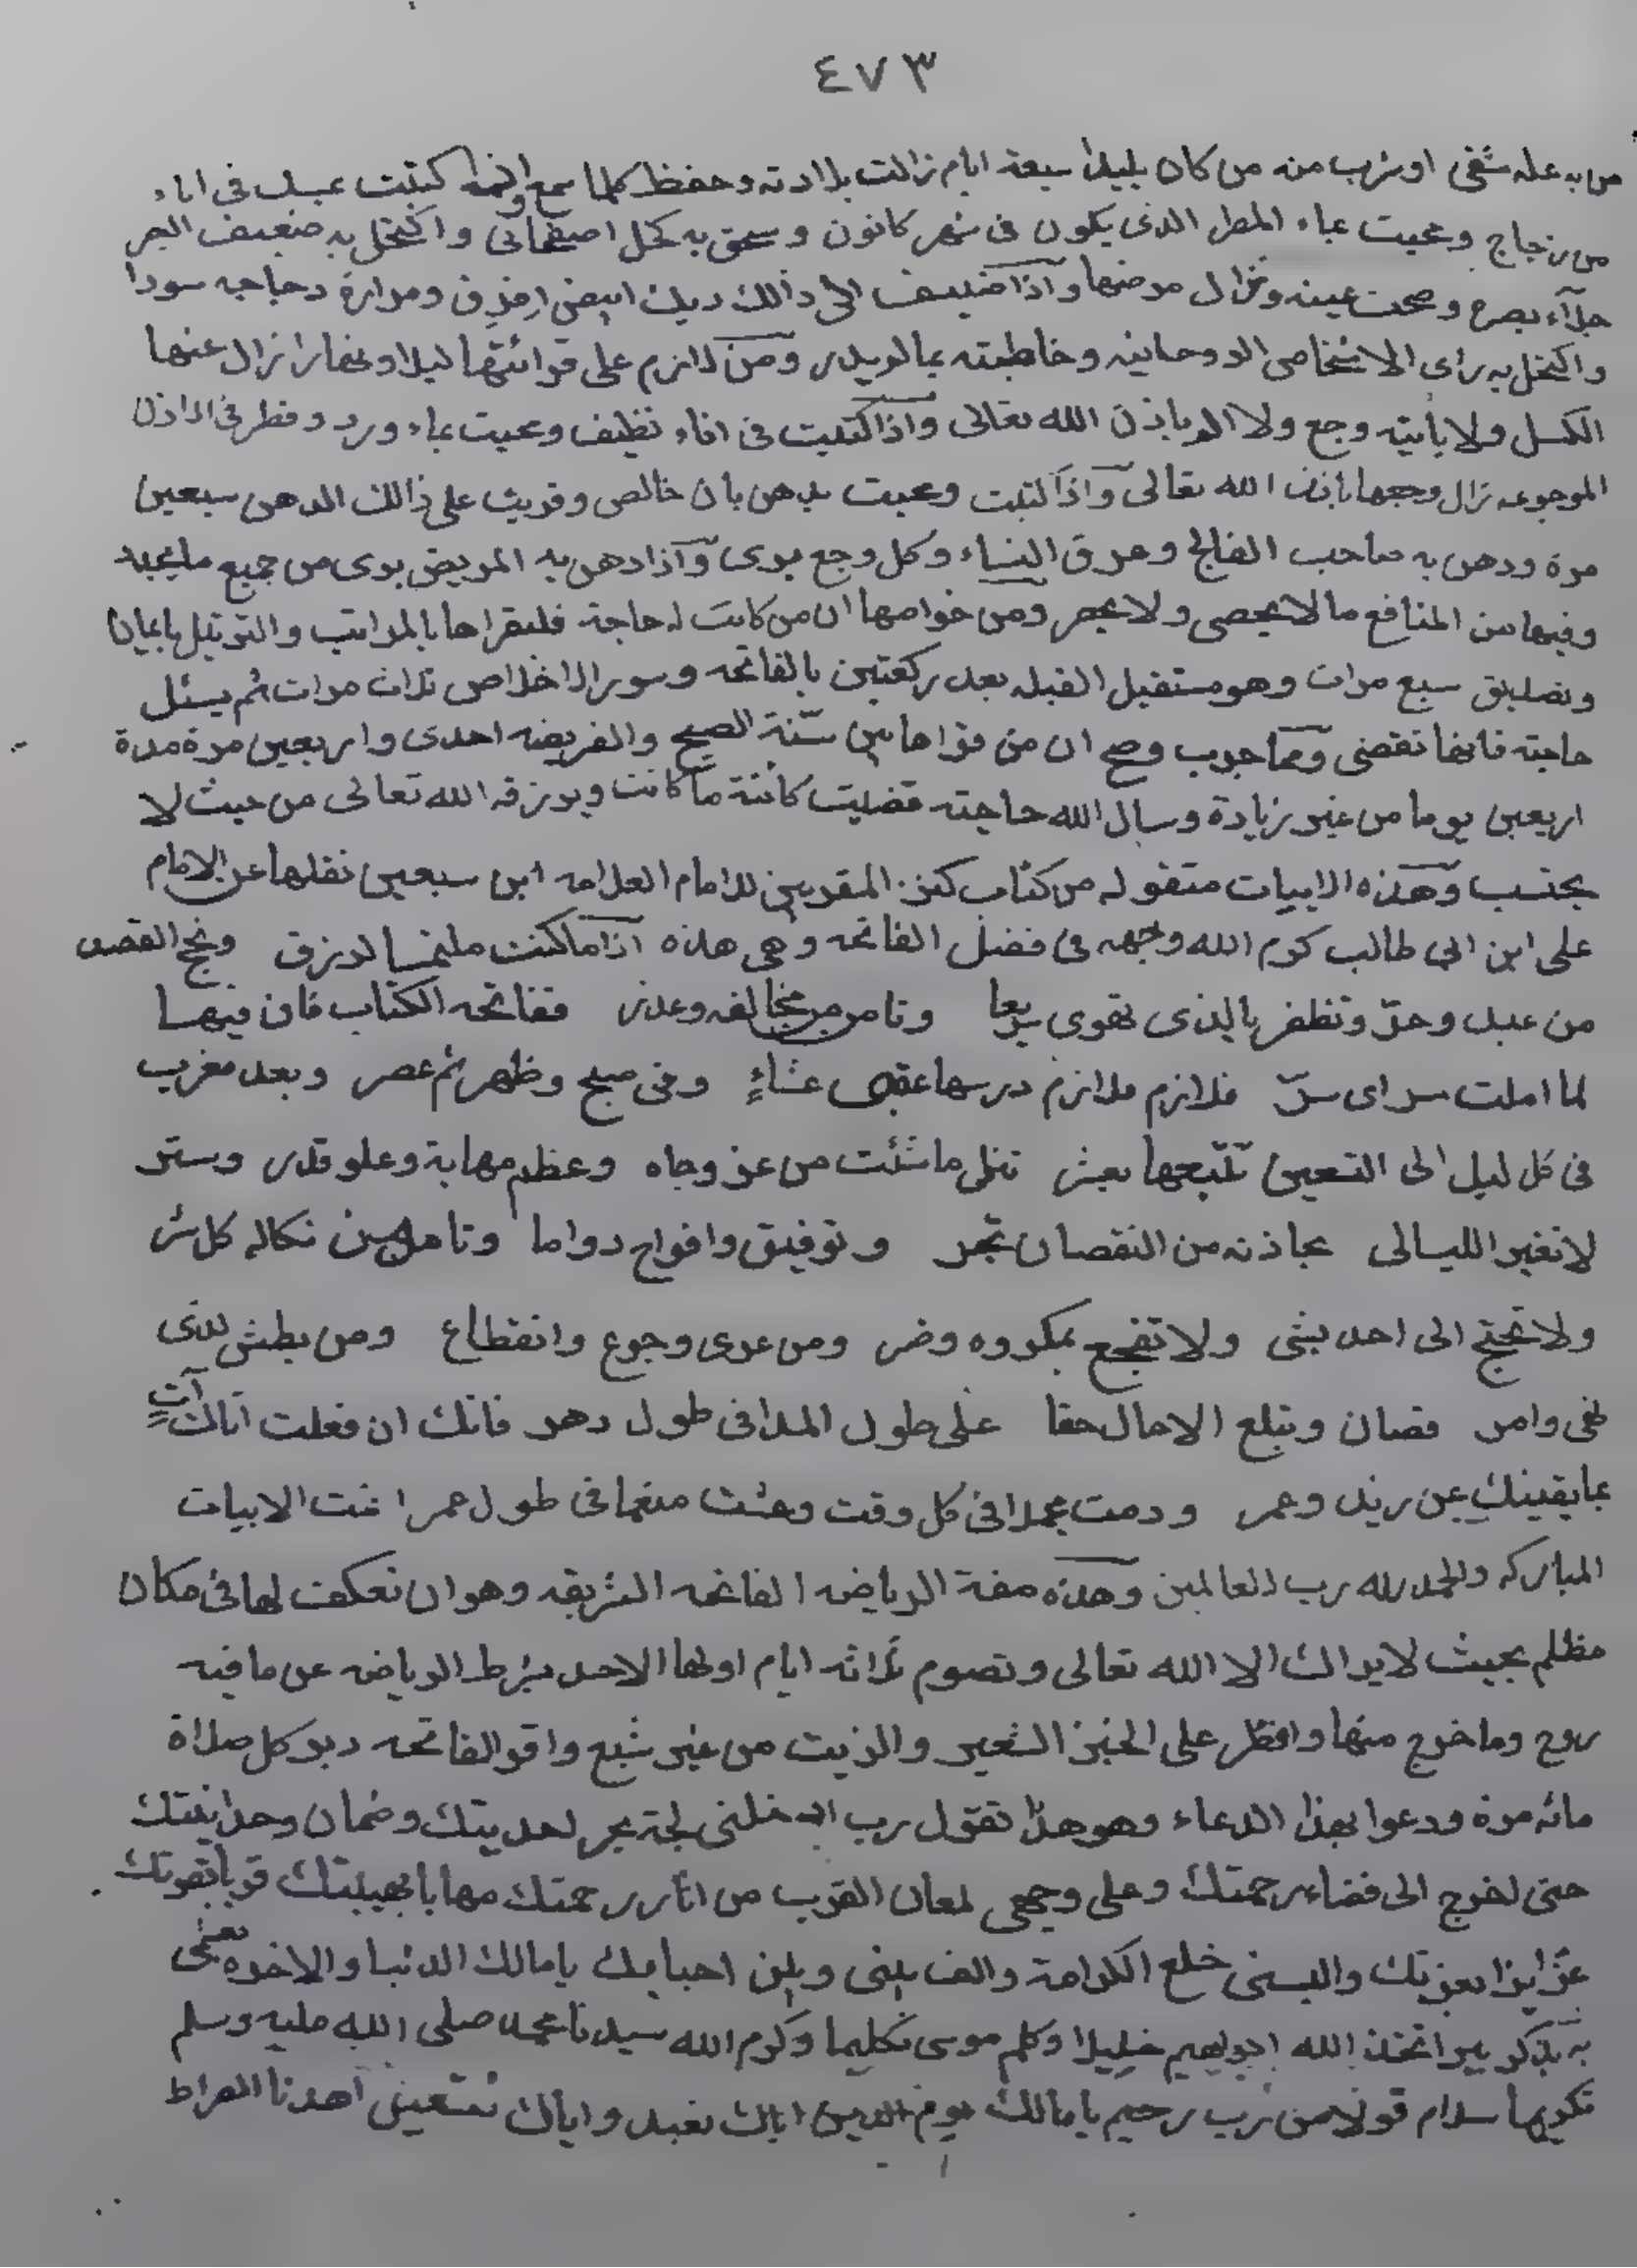 ٤٧٣
من به علة شفى او شرب منه من كان بليدا سبعة ايام زالت بلادته وحفظ كلما سمع وافهمه كتبت عسك فى اناء
من زجاج ومحيت بماء المطر الذى يكون فى شهر كانون وسحق به كحل اصفهانى واكتحل به ضعيف البصر
جلآء بصره وصحت عينه وتزال مرضها واذا ضيف الى ذالك ديك ابيض افرق ومرارة دجاجه سودا
واكتحل به راى الاشخاص الروحانيه وخاطبته بما يريد ومن لازم على قرائتها ليلا ونهارا زال عنها
الكسل ولا يأتيه وجع ولا الم باذن الله تعالى واذا كتبت فى اناء نظيف ومحيت بماء ورد وقطر فى الاذن
الموجوعه زال وجعها باذن الله تعالى واذا كتبت ومحيت بدهن بان خالص وقريت على ذالك الدهن سبعين
مرة ودهن به صاحب الفالج وعرق النساء وكل وجع يبرى واذا دهن به المريض يبرى من جميع ما يجد
وفيها من المنافع ما لا يحصى ولا يحصر ومن خواصها ان من كانت له حاجة فليقراها بالمراتب والترتيل بايمان
وتصديق سبع مرات وهو مستقبل القبله بعد ركعتين بالفاتحه وسورالاخلاص ثلاث مرات ثم يسئل
حاجته فانها تقضى ومما جرب وصح ان من قراها بين سنة الصبح والفريضه احدى واربعين مرة مدة
اربعين يوما من غير زيادة وسال الله حاجته قضيت كائنة ما كانت ويرزقه الله تعالى من حيث لا
يحتسب وهذه الابيات منقوله من كتاب كنز المقربين للامام العلامه ابن سبعين نقلها عن الامام
على ابن ابى طالب كرم الله وجهه فى فضل الفاتحه وهى هذه اذا ما كنت ملتمسا لرزق ونجح القصد
من عبد وحرّ وتظفر بالذى تهوى سريعا وتامن من مخالفه وغدر ففاتحه الكتاب فان فيها
لما املت سر اى سرّ فلازم درسها عقبى عشاءٍ وفى صبح وظهر ثم عصر وبعد مغرب
فى كل ليل الى التسعين تتبعها بعشر تنل ما شئت من عز وجاه وعظم مهابة وعلو قدر وستر
لا تغيره الليالى بحاذثه من النقصان تجر وتوفيق وافراح دواما وتامن من نكاله كل شر
ولا تحتج الى احد بشئ ولا تفجع بمكروه وضر ومن عرى وجوع وانقطاع ومن بطش لذى
نهى وامر فصان وتبلغ الامال حقا على طول المدا فى طول دهر فانك ان فعلت اتاك آتٍ
بما يغنيك عن زيد وعمر ودمت ممجدا فى كل وقت وعشت منعما فى طول عمر انتهت الابيات
المباركه والحمد لله رب العالمين وهذه صفة الرياضه الفاتحه الشريفه وهو ان تعكف لها فى مكان
مظلم بحيث لا يراك الا الله تعالى وتصوم ثلاثه ايام اولها الاحد بشرط الرياضه عن ما فيه
روح وما خرج منها وافطر على الخبز الشعير والزيت من غير شبع واقر الفاتحه دبر كل صلاة
مائه مرة ودعوا بهذا الدعاء وهو هذا تقول رب ادخلنى لجة بحر احديتك وضمان وحدانيتك
حتى اخرج الى فضاء رحمتك وعلى وجهى لمعان القرب من اثار رحمتك مهابا بهيبتك قويا بقوتك
عزيزا بعزتك والبسنى خلع الكرامة والف بينى وبين احبابك يا مالك الدنيا والاخره
تذكر يبر اتخذ الله ابرهيم خليلا وكلم موسى تكليما وكرم الله سيدنا محمد صلى الله عليه وسلم
تكريما سلام قولا من رب رحيم يا مالك يوم الدين اياك نعبد واياك نستعين اهدنا الصراط